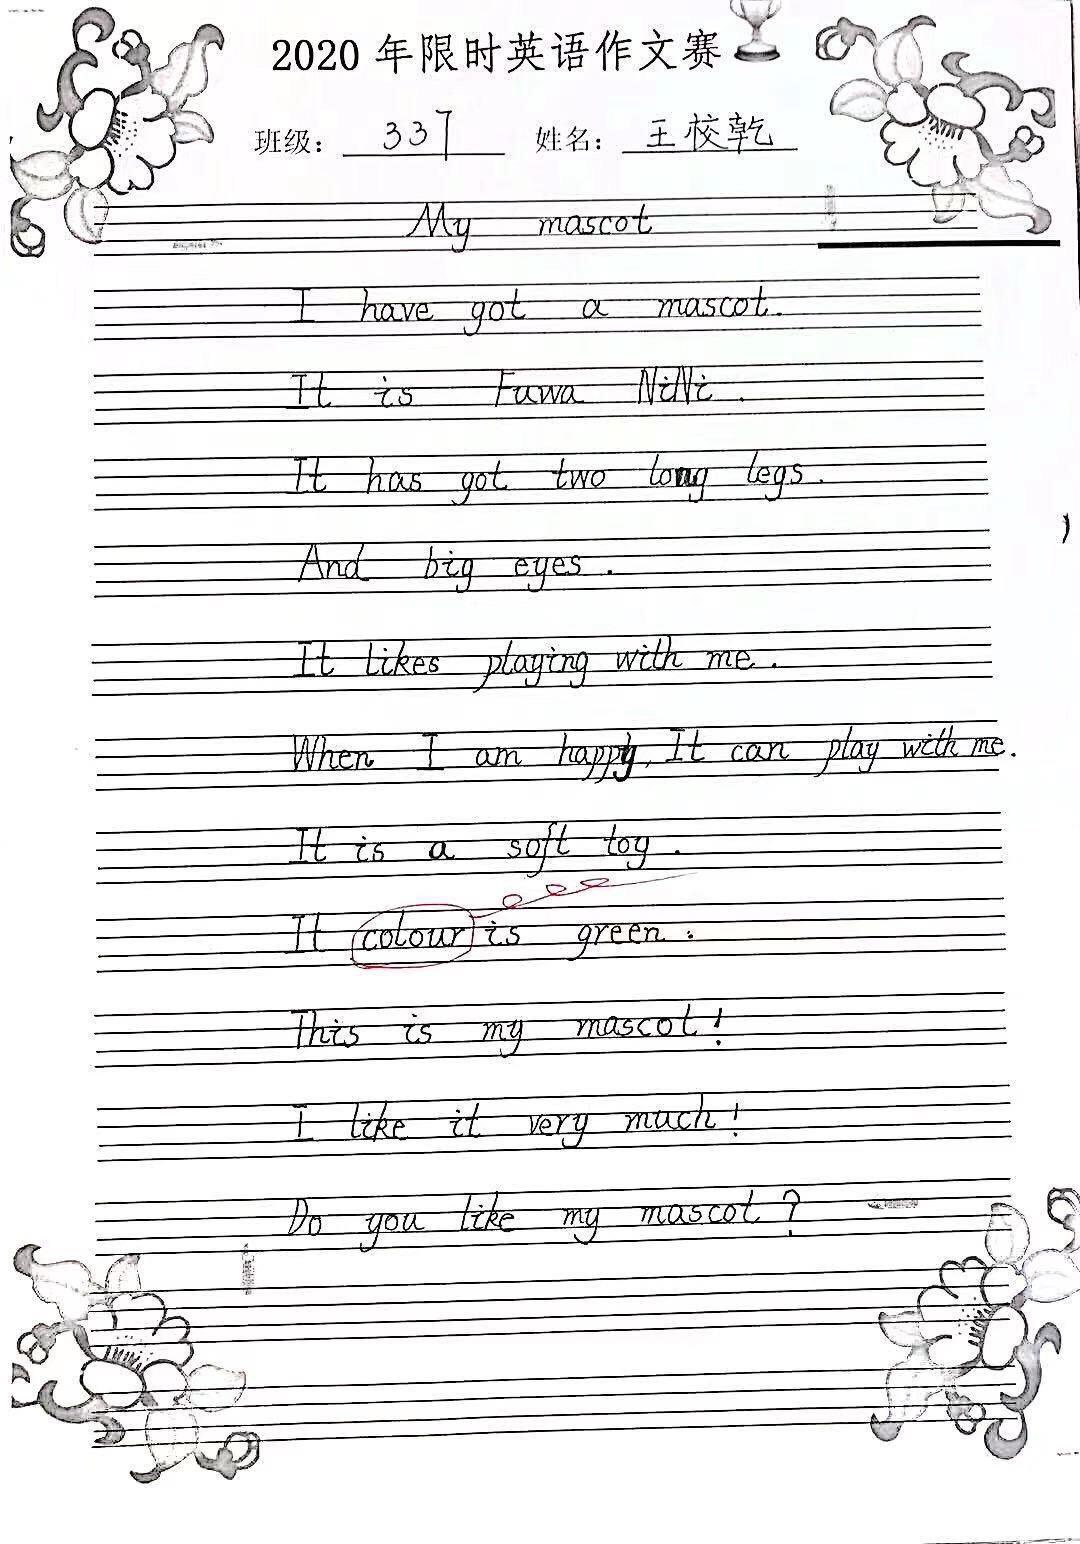 2020年限时英语作文赛
班级： 337 姓名： 王校乾
My mascot
I have got a mascot.
It is Fuwa NiNi.
It has got two long legs.
And big eyes.
It likes playing with me.
When I am happy, It can play with me.
It is a soft toy.
It colour is green.
This is my mascot!
I like it very much!
Do you like my mascot?